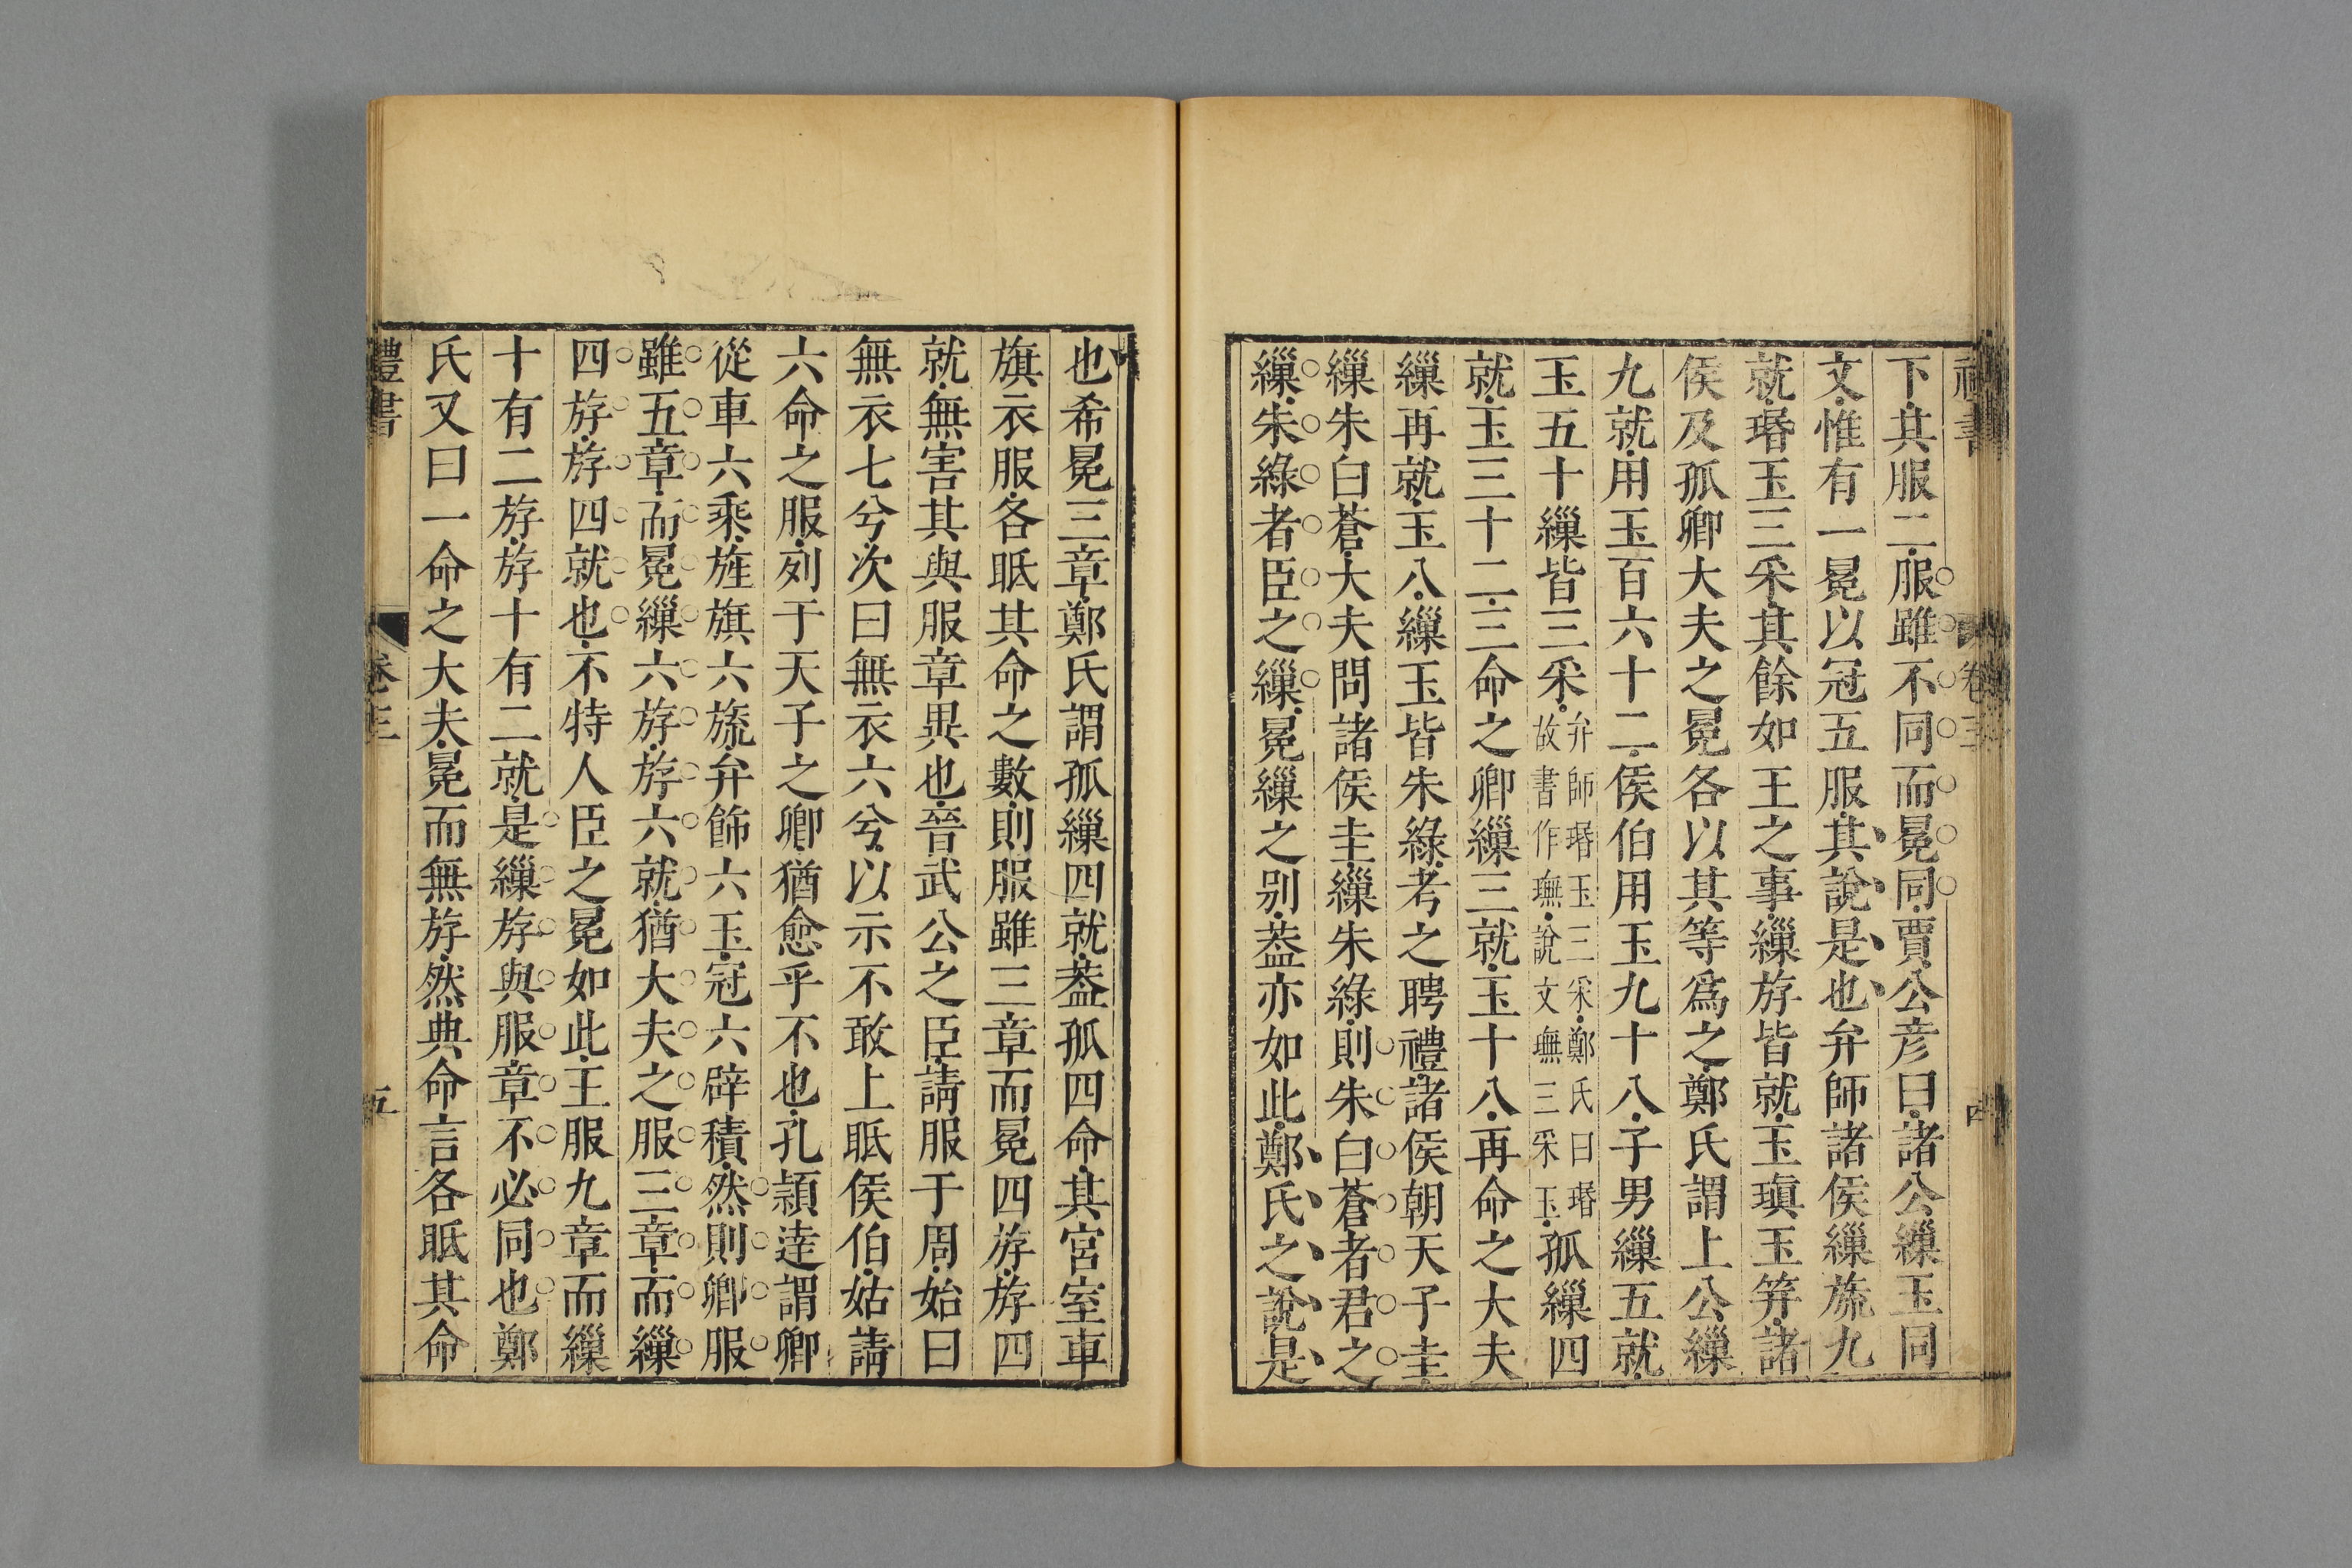 下其服二服雖不同而冕同賈公彦曰諸公繅玉同
文惟有一冕以冠五服其說是也弁師諸侯繅斿九
就瑉玉三采其餘如王之事繅斿皆就玉瑱玉笄諸
侯及孤卿大夫之冕各以其等爲之鄭氏謂上公繅
九就用玉百六十二侯伯用玉九十八子男繅五就
玉五十繅皆三采弁師瑉玉三采鄭氏曰瑉故書作璑說文璑三采玉孤繅四
就玉三十二三命之卿繅三就玉十八再命之大夫
繅再就玉八繅玉皆朱綠考之聘禮諸侯朝天子圭
繅朱白蒼大夫問諸侯圭繅朱綠則朱白蒼者君之
繅朱綠者臣之繅冕繅之别葢亦如此鄭氏之說是
也希冕三章鄭氏謂孤繅四就葢孤四命其宮室車
旗衣服各眡其命之數則服雖三章而冕四斿斿四
就無害其與服章異也晉武公之臣請服于周始曰
無衣七兮次曰無衣六兮以示不敢上眡侯伯姑請
六命之服列于天子之卿猶愈乎不也孔頴逹謂卿
從車六乘旌旗六旒弁飾六玉冠六辟積然則卿服
雖五章而冕繅六斿斿六就猶大夫之服三章而繅
四斿斿四就也不特人臣之冕如此王服九章而繅
十有二斿斿十有二就是繅斿與服章不必同也鄭
氏又曰一命之大夫冕而無斿然典命言各眡其命
禮書
卷三
五